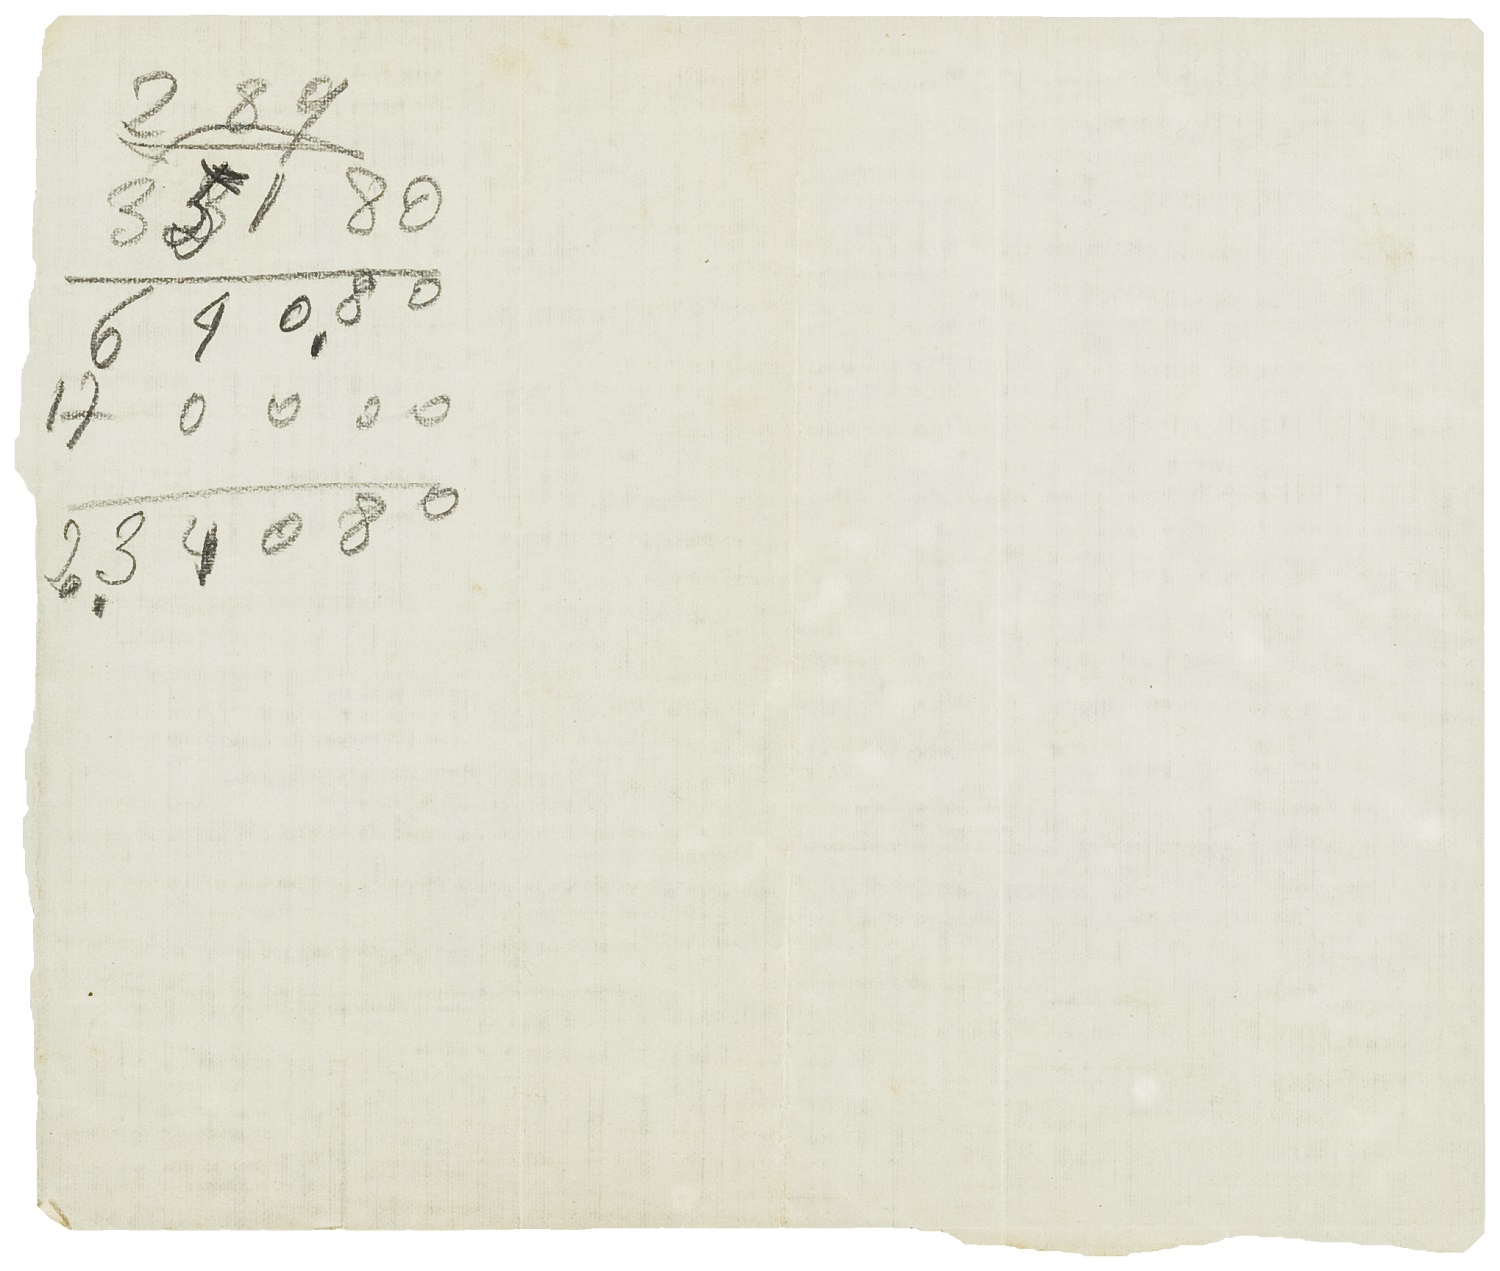 289
351 80
640,80
170000
2,34080